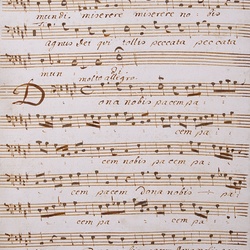 mundi. miserere miserere no: bis
agnus Dei qui tollis peccata peccata
mun di.
molto allegro.
Dona nobis pacem pa:
cem pa:
cem nobis pacem pa:
cem pacem Dona nobis pa:
cem pa: cem pa:
cem